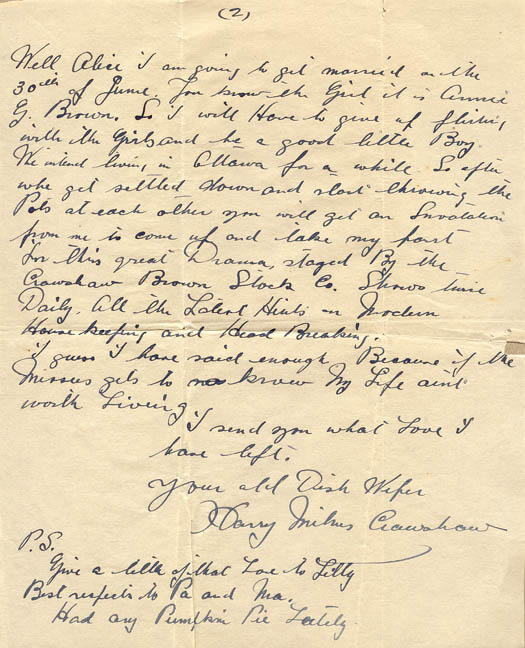 (2)
Well Alice I am going to get married on the
30th of June. You know the Girl it is Annie
G. Brown. So I will Have to give up flirting
with the Girls and be a good little Boy.
We intend living in Ottawa for a while. So after
whe get settled down and start throwing the
Pots at each other you will get an Invatation
from me to come up and take my part
for this great Drama, staged By the
Crawshaw Brown Stock Co. Shows twice
Daily. All the Latest Hints on Modern
House keeping and Head Breaking.
I guess I have said enough Because if the
Missus gets to know My Life aint
worth Liveing.
I send you what Love I
have left.
Your old Dish Wiper
Harry Milnes Crawshaw
P.S.
Give a little of that Love to Letty
Best respects to Pa and Ma.
Had any Pumpkin Pie Lately.